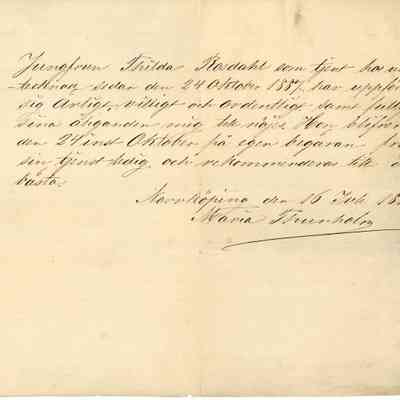 Jungfrun Thilda Rosdahl som tjent hos un
tecknad sedan den 24 Oktober 1887, har uppför
sig ärligt, villigt och ordentligt samt full
sina åligganden mig till nöjes. Hon blifver
den 24 inst Oktober på egen begäran fr
sin tjenst ledig, och rekommenderas till d
bästa.
Norrköping den 16 Juli 18
Maria Thunholm